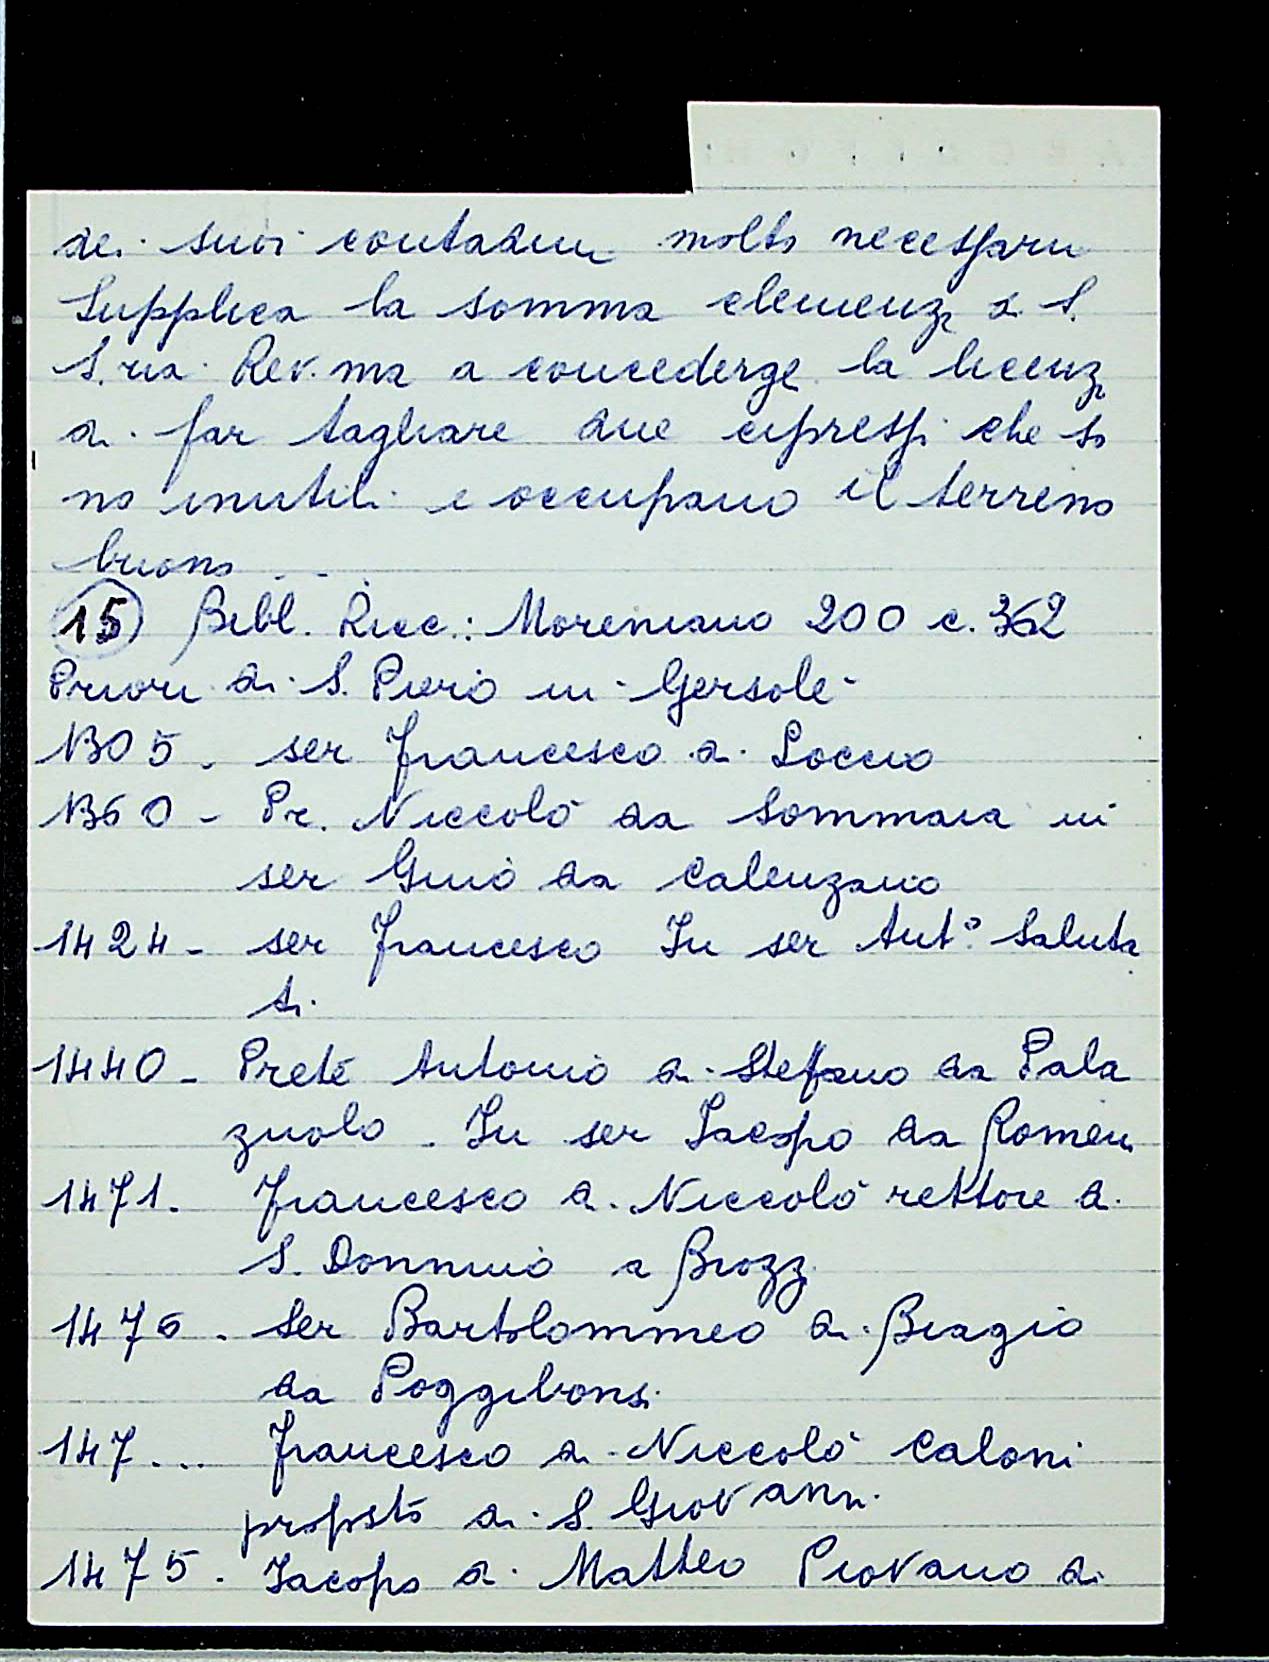 dei suoi contadini molto necessarii
Supplica la somma clemenza di S.
S.ria Rev.ma a concederge la licenza
di far tagliare due cipressi che so
no inutili e occupano il terreno
buono ...
15) Bibl. Ricc.: Moreniano 200 c. 362
Priori di S. Piero in Gersolè
1305. ser Francesco di Loccio
1360 - Pr. Niccolò da Sommaia in
ser Guió da Calenzano
1424 - ser Francesco In ser Ant.° Saluta
ti
1440 - Prete Antonio di Stefano da Pala
zuolo. In ser Iacopo da Romen
1471. Francesco di Niccolò rettore di
S. Donnino a Brozzi
1476. Ser Bartolommeo di Biagio
da Poggibonsi
147... Francesco di Niccolò Caloni
proposto di S. Giovanni
1475. Iacopo di Matteo Piovano di